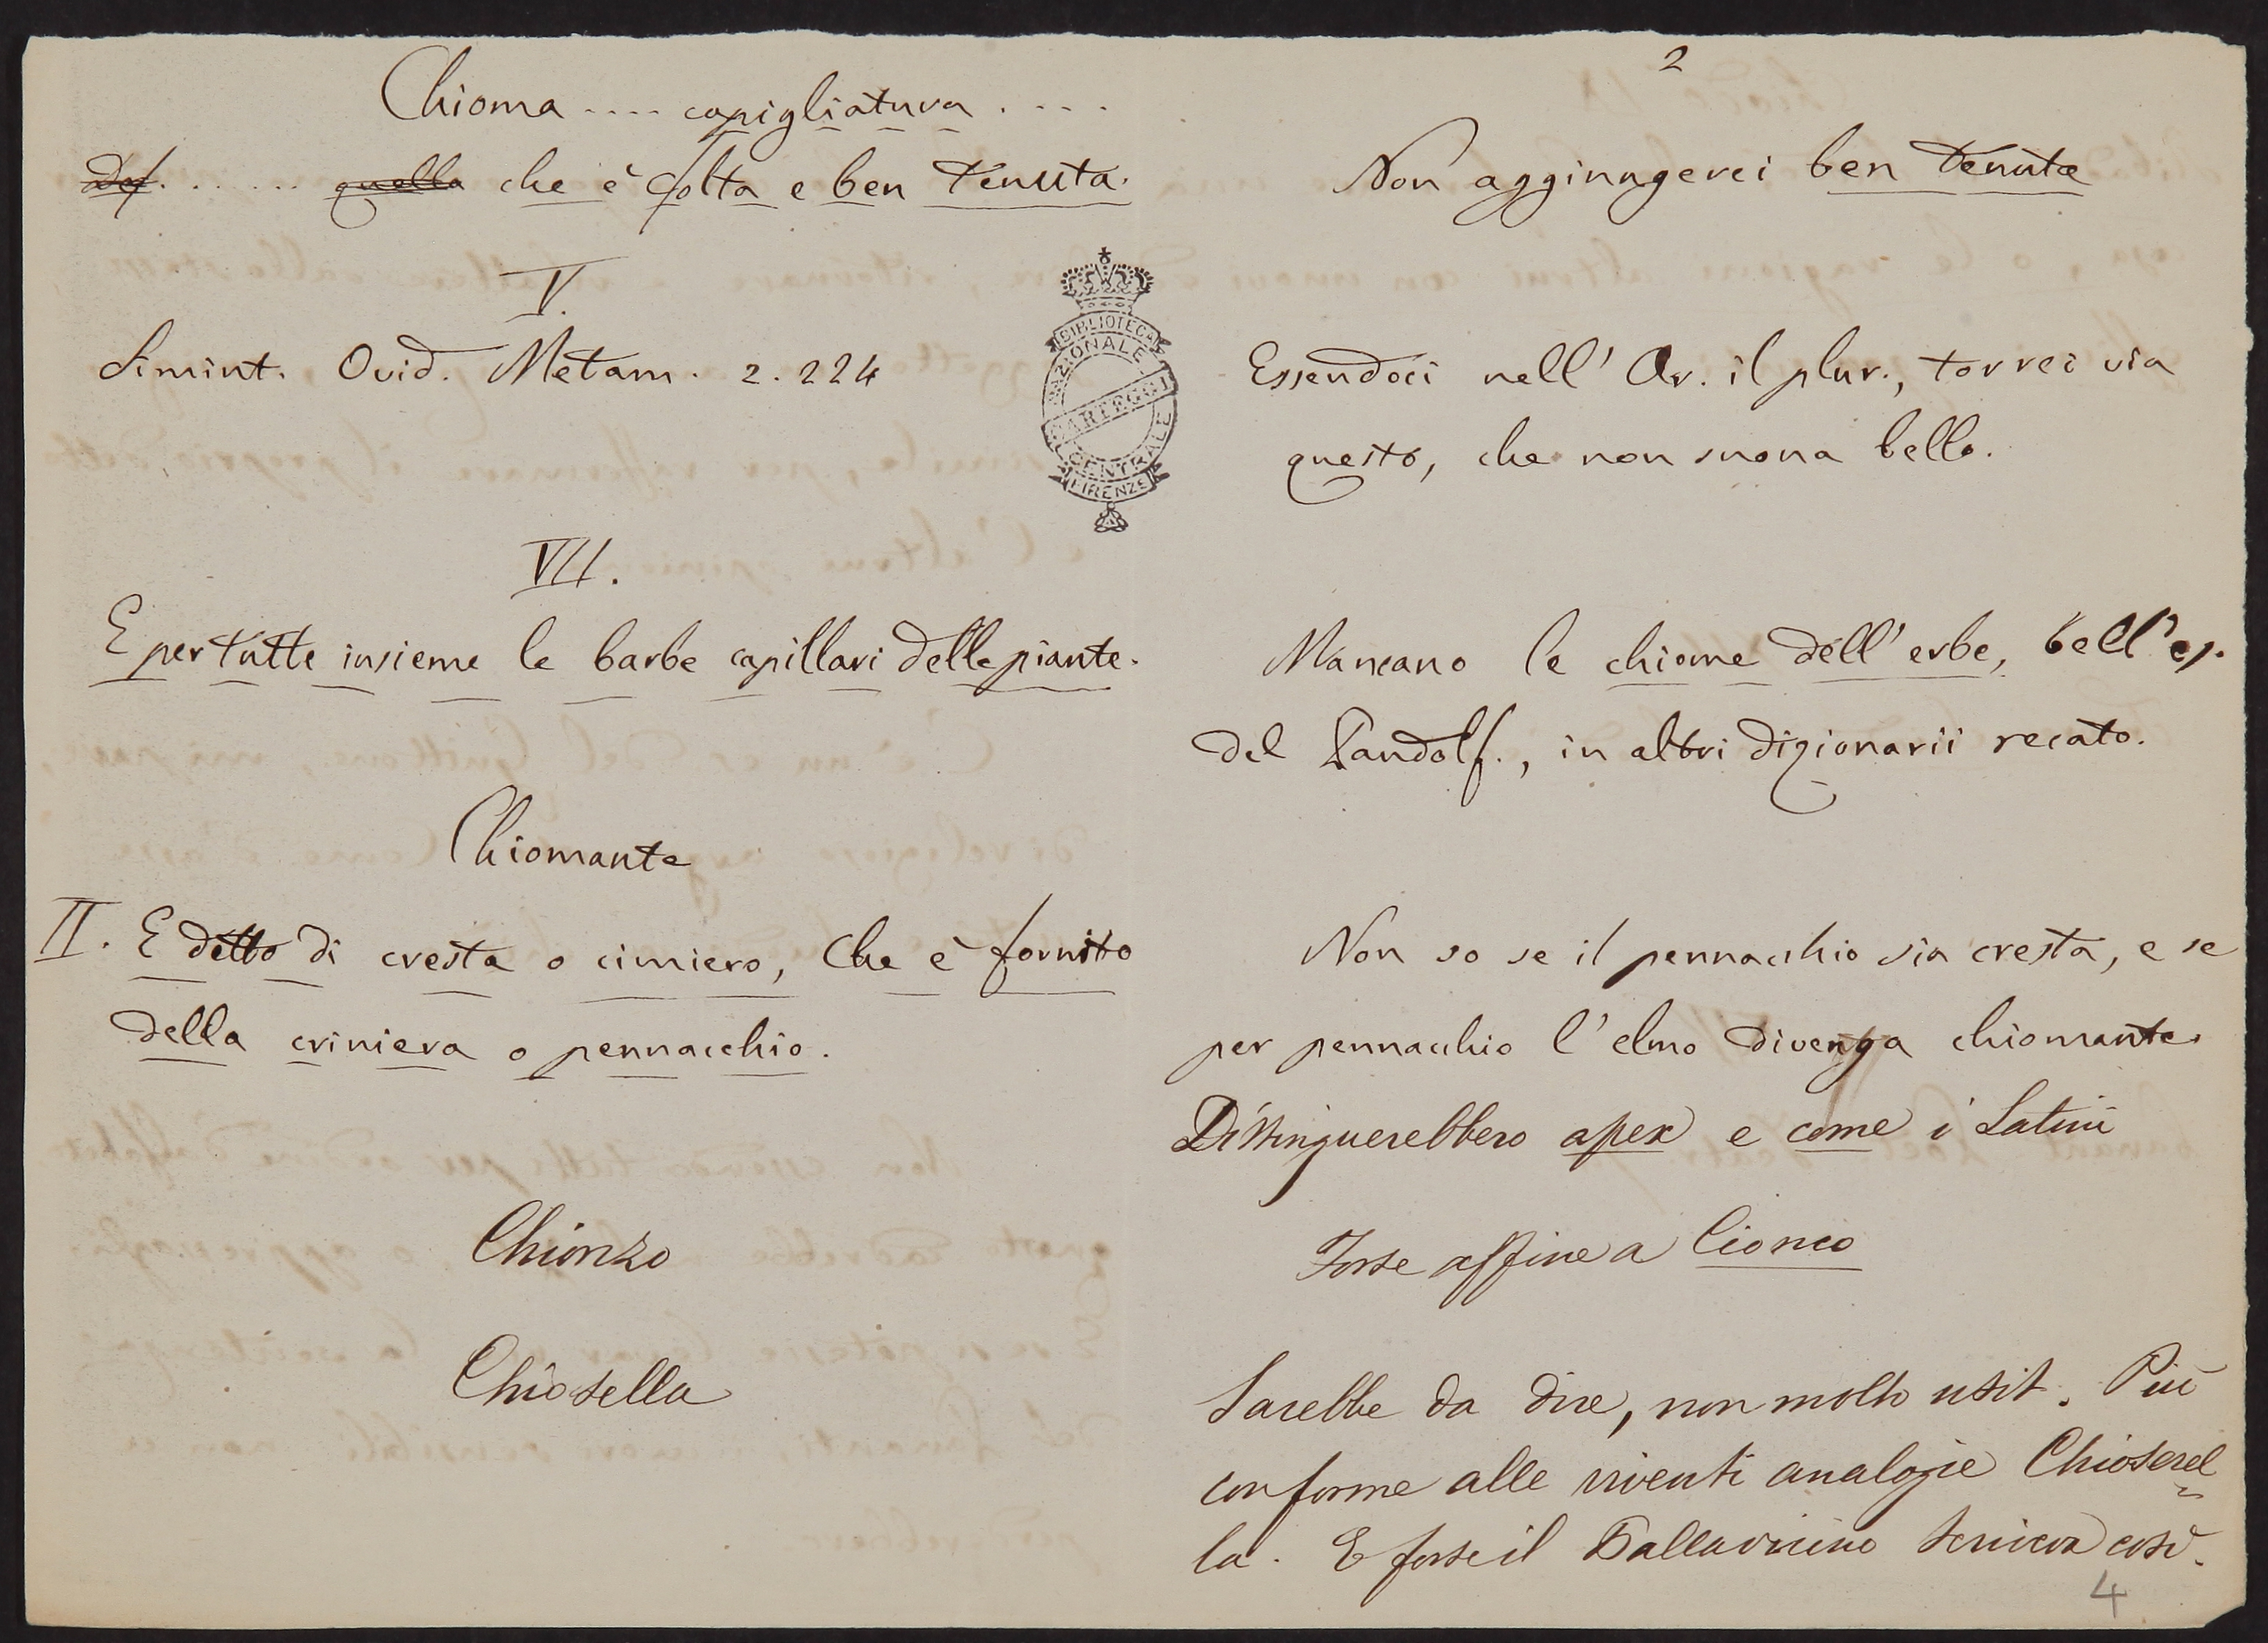 2
Chioma .... capigliatura ....
Def. ...... quella che è folta e ben tenuta.
Non aggiungerei ben tenuta
V.
Simint. Ovid. Metam. 2. 224
Essendoci nell' Ar. il plur., torrei via
questo, che non suona bello.
BIBLIOTECA
NAZIONALE
CARTEGGI
CENTRALE
FIRENZE
VII.
E per tutte insieme le barbe capillari delle piante.
Mancano le chiome dell' erbe, bell' es.
del Pandolf., in altri dizionarii recato.
Chiomante
II. E detto di cresta o cimiero, che è fornito
della criniera o pennacchio.
Non so se il pennacchio sia cresta, e se
per pennacchio l' elmo divenga chiomante.
Distinguerebbero apex e come i Latini
Chionzo
Forse affine a Cionco
Chiosella
Sarebbe da dire, non molto usit. Più
conforme alle viventi analogie Chioserel
la. E forse il Pallavicino scriveva così.
4